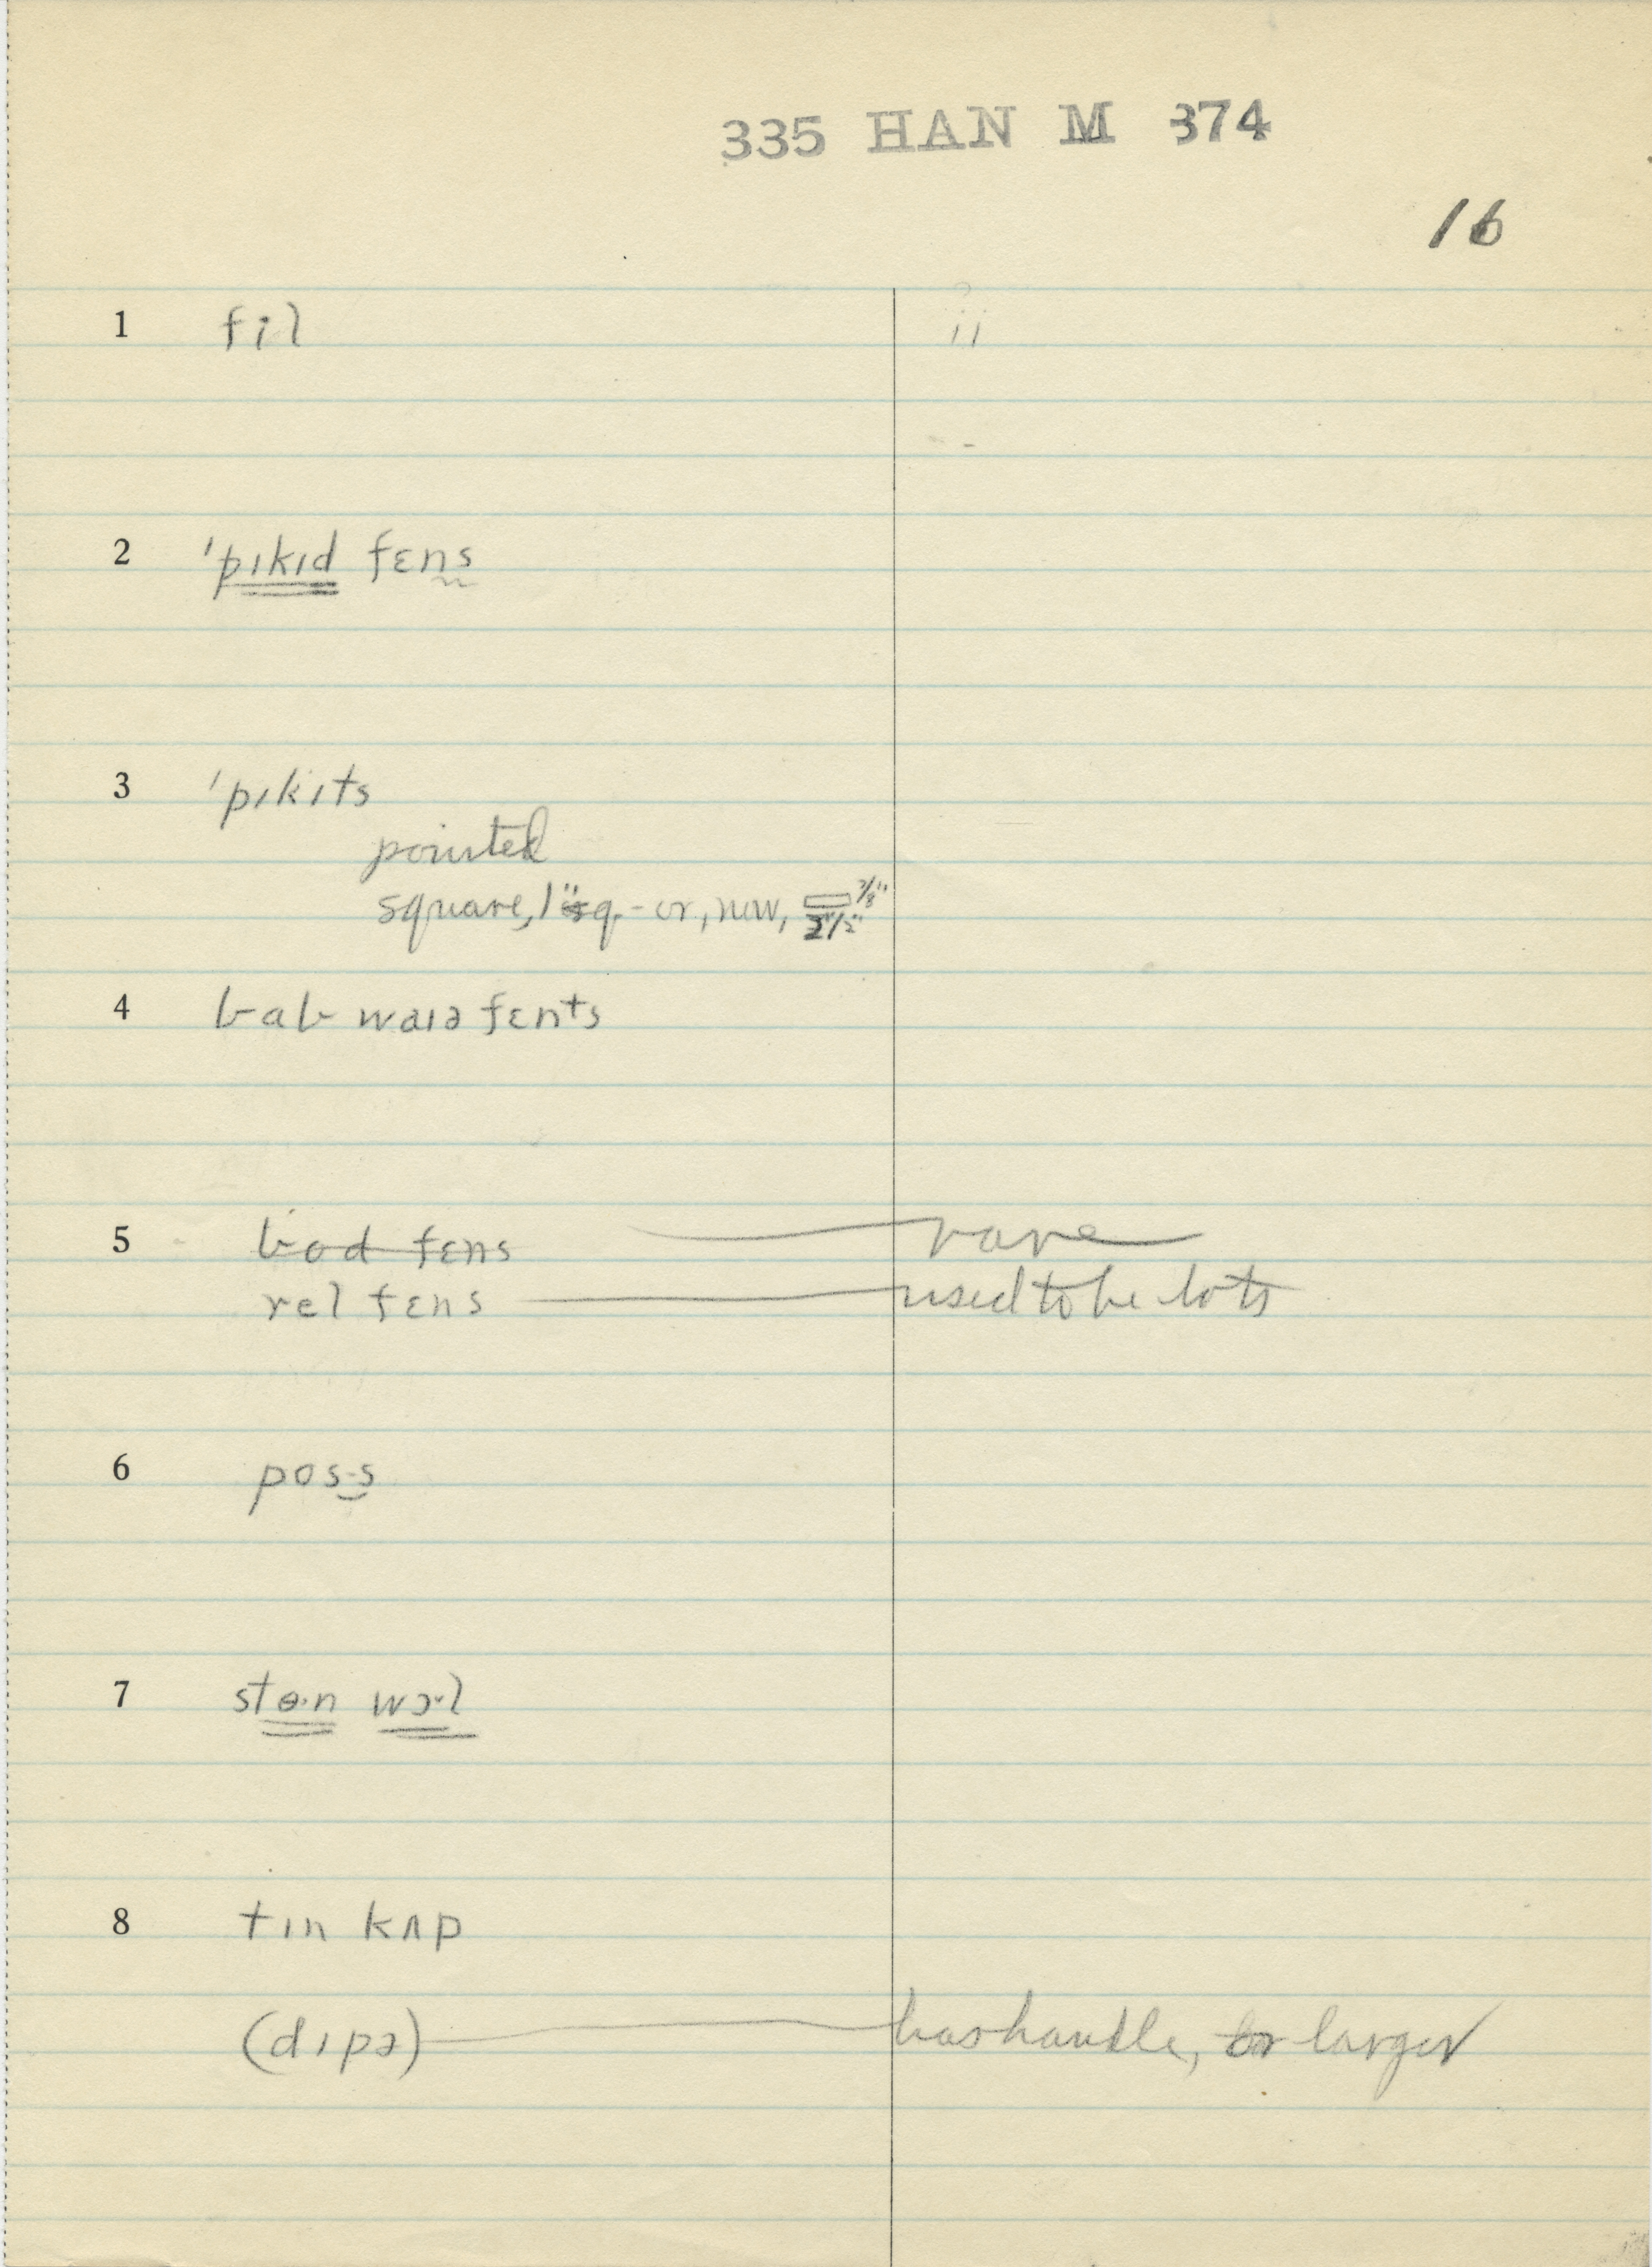 335 HAN M 374
16
1 fil
2 ˈpɪkɪd fɛns
3 ˈpɪkɪts
pointed
square, 1" sq. - or, now, 7/8" 2 1/2"
4 bab waɪə fɛnts
5 bod fɛns rare
rel fɛns used to be lots
6 pos·s
7 stɵ·n wɔ·l
8 tɪn kʌp
(dɪpə) has handle, or larger